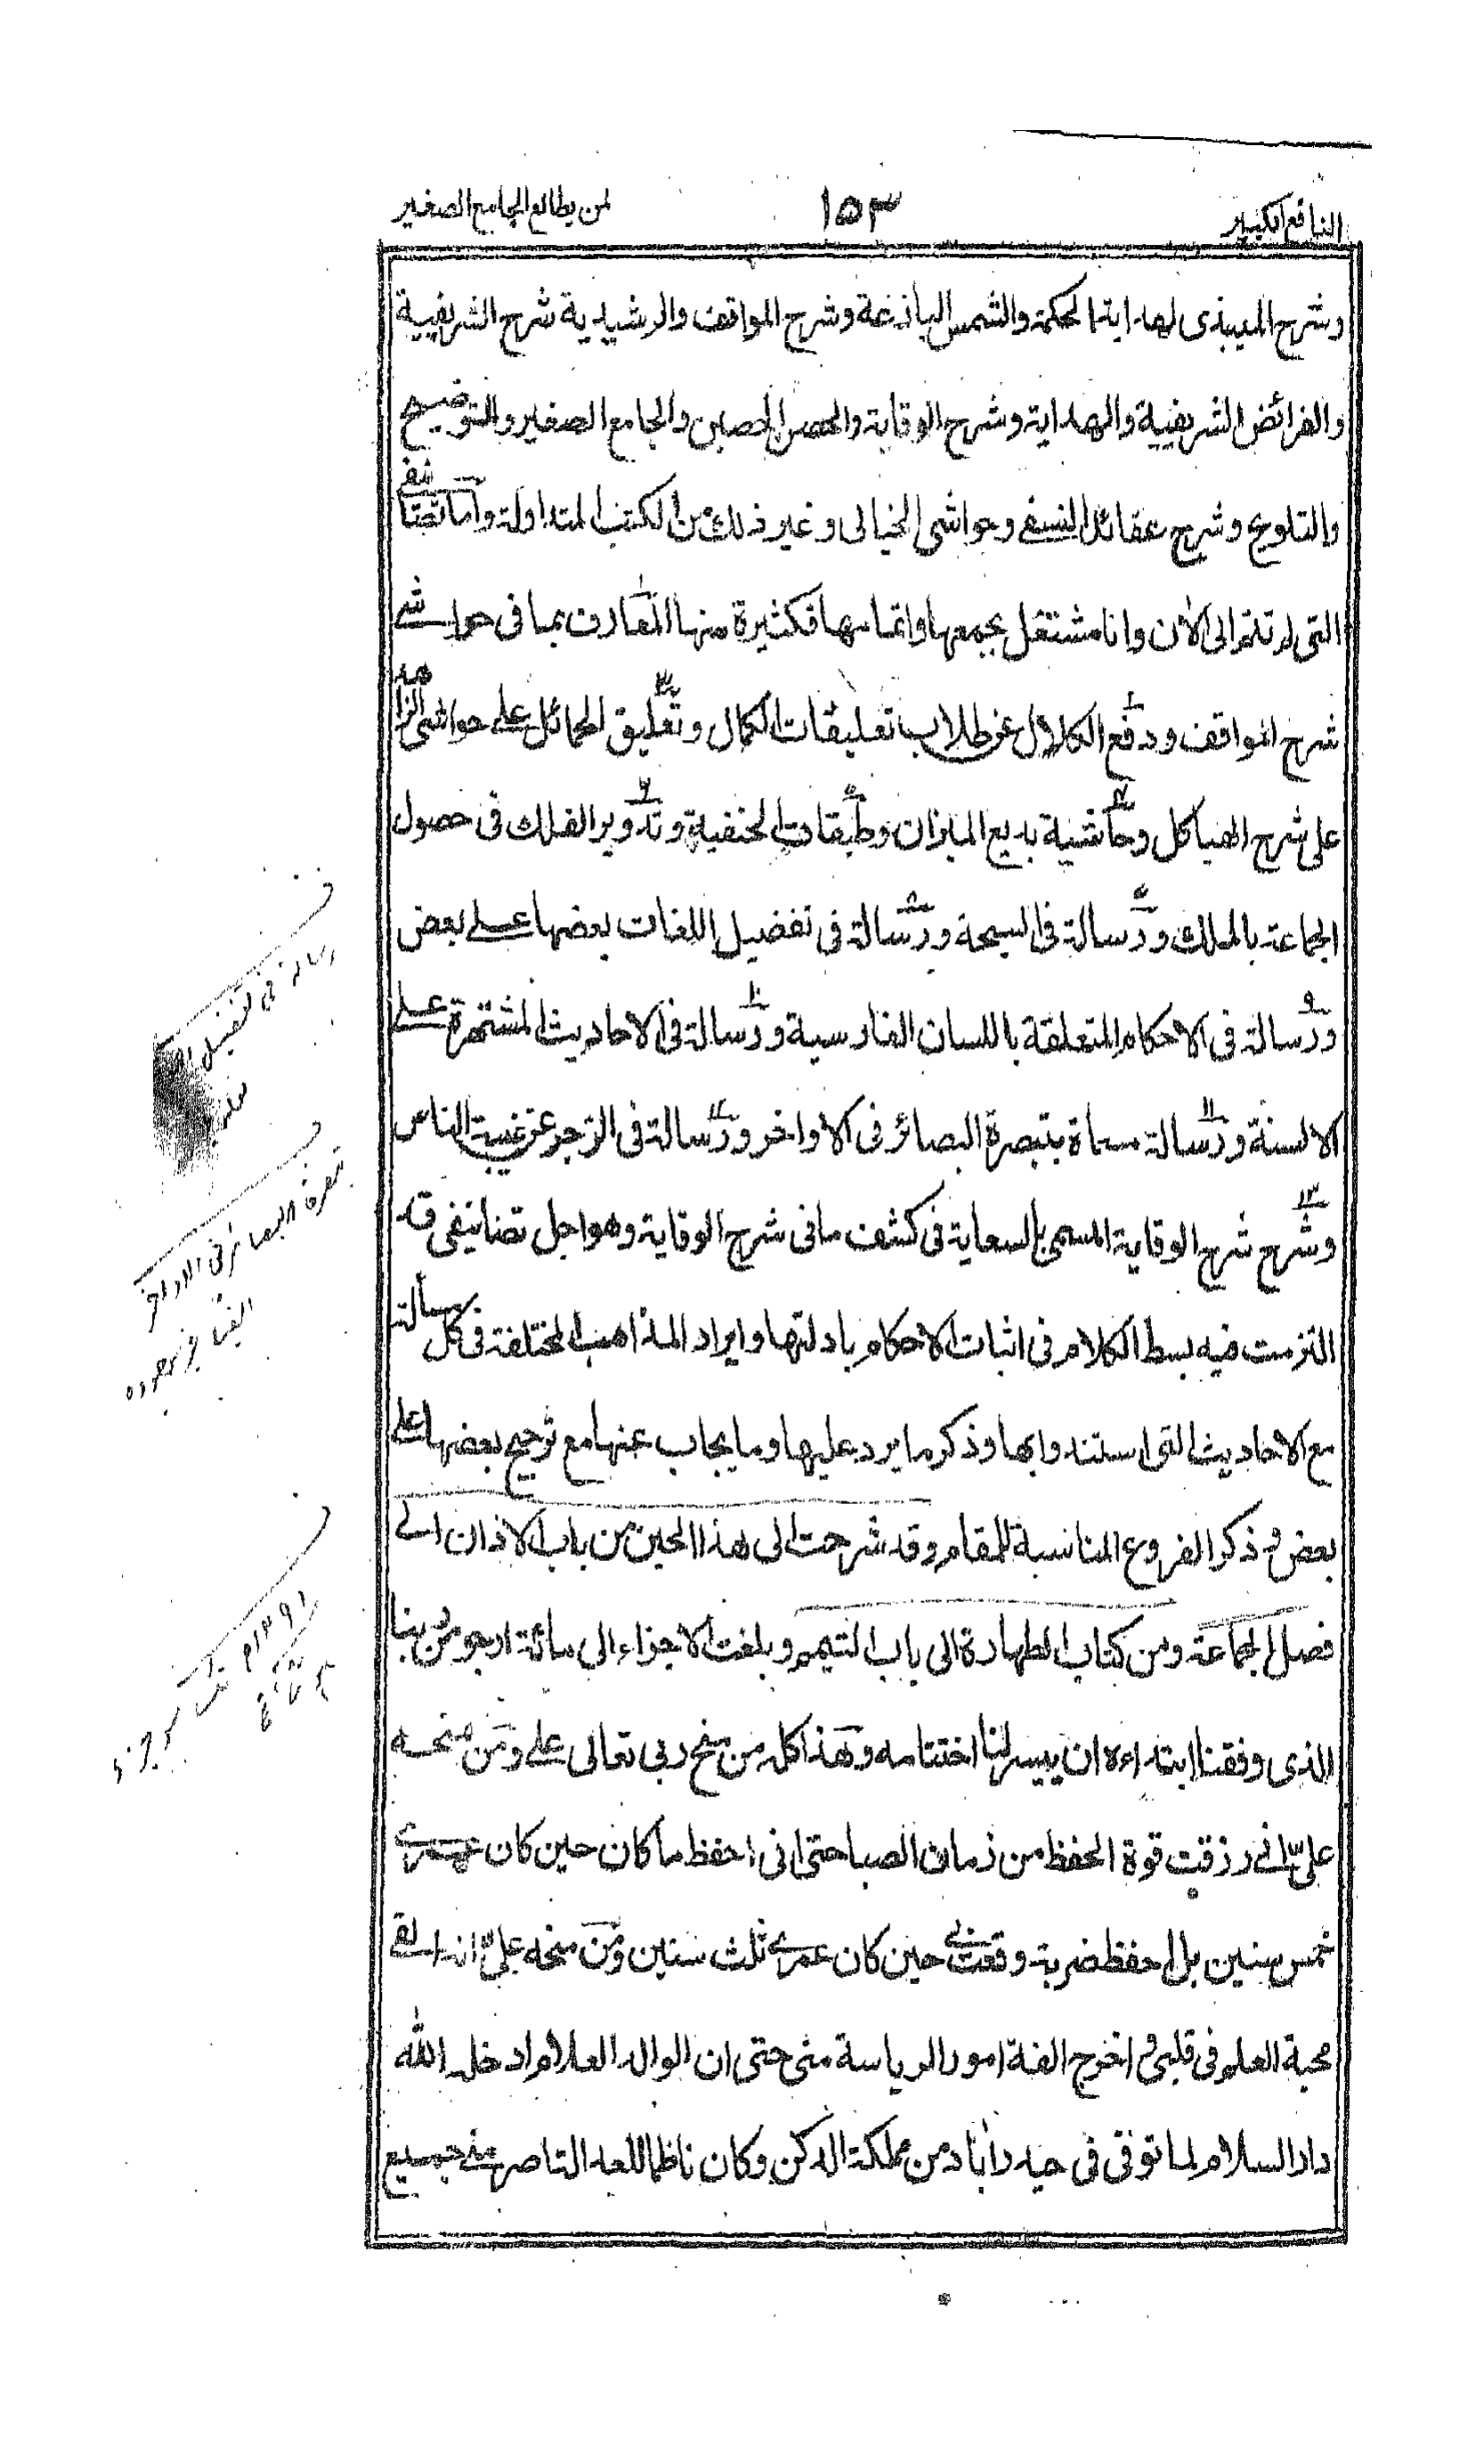 النافع الكبير ١٥٣ لمن يطالع الجامع الصغير
وشرح الميبذى لهداية الحكمة والشمس البازغة وشرح المواقف والرشيدية شرح الشريفية
والفرائض الشريفية والهداية وشرح الوقاية والحصن الحصين والجامع الصغير والتوضيح
والتلويح وشرح عقائد النسفى وحواشى الخيالى وغير ذلك من الكتب المتداولة واما تصانيفى
التى لم تتم الى الآن وانا مشتغل بجمعها واتمامها فكثيرة منها المعارف بما فى حواشى
شرح المواقف ود٢فع الكلال عن طلاب تعليقات الكمال وت٣عليق الحمائل على حواشى الزاهد
على شرح الهياكل وح٤اشية بديع الميزان وط٥بقات الحنفية وت٦دوير الفلك فى حصول
الجماعة بالملك ور٧سالة فى السبحة ور٨سالة فى تفضيل اللغات بعضها على بعض
ور٩سالة فى الاحكام المتعلقة باللسان الفارسية ور١٠سالة فى الاحاديث المشتهرة على
الالسنة ور١١سالة مسماة بتبصرة البصائر فى الاواخر ور١٢سالة فى الزجر عن غيبة الناس
وش١٣رح شرح الوقاية المسمى بالسعاية فى كشف ما فى شرح الوقاية وهو اجل تصانيفى قد
التزمت فيه بسط الكلام فى اثبات الاحكام بادلتها وايراد المذاهب المختلفة فى كل مسألة
مع الاحاديث التى استندوا بها وذكر ما يرد عليها وما يجاب عنها مع ترجيح بعضها على
بعض وذكر الفروع المناسبة للمقام وقد شرحت الى هذا الحين من باب الاذان الى
فصل الجماعة ومن كتاب الطهارة الى باب التيمم وبلغت الاجزاء الى مائة ارجو من ربنا
الذى وفقنا ابتداءه ان ييسر لنا اختتامه وهذا كله من منح ربى تعالى على ومن منحه
على انى رزقت قوة الحفظ من زمان الصبا حتى انى احفظ ما كان حين كان عمرى
خمس سنين بل احفظ ضربة وقعت لى حين كان عمرى ثلث سنين ومن منحه على انه القى
محبة العلم فى قلبى واخرج الفة امور الرياسة منى حتى ان الوالد العلام ادخله الله
دار السلام لما توفى فى حيدراباد من مملكة الدكن وكان ناظما للعدالة منى جميع
رسالة فى تفضيل
تبصرة البصائر فى الاواخر
١٢٩١